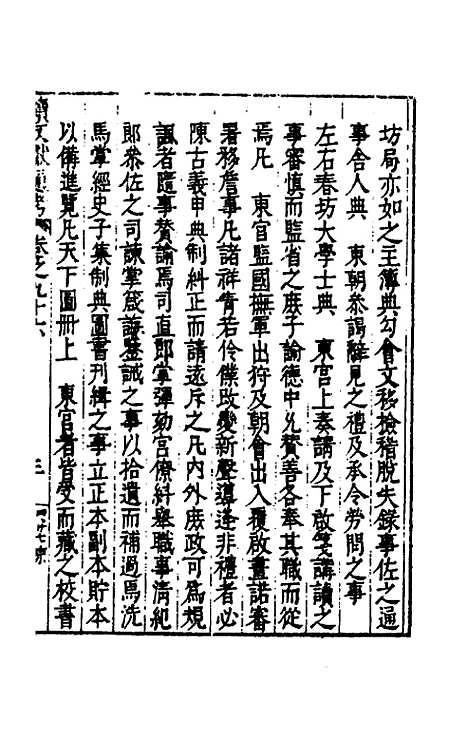 坊局亦如之主簿典勾會文移檢稽脫失錄事佐之通
事舍人典　東朝參謁辭見之禮及承令勞問之事
左右春坊大學士典　東宮上奏請及下啟箋講讀之
事審慎而監省之庶子諭德中允贊善各奉其職而從
焉凡　東宮監國撫軍出狩及朝會出入覆啟畫諾審
署移詹事凡諸祥眚若伶僕改變新聲導逢非禮者必
陳古義申典制糾正而請遠斥之凡内外庶政可爲規
諷者隨事贊諭焉司直郎掌彈劾宮僚糾舉職事清紀
郎參佐之司諫掌箴誨鑒誡之事以拾遺而補過焉洗
馬掌經史子集制典圖書刊緝之事立正本副本貯本
以備進覽凡天下圖冊上　東宮者皆受而藏之校書
續文獻通考　卷之九十六　三